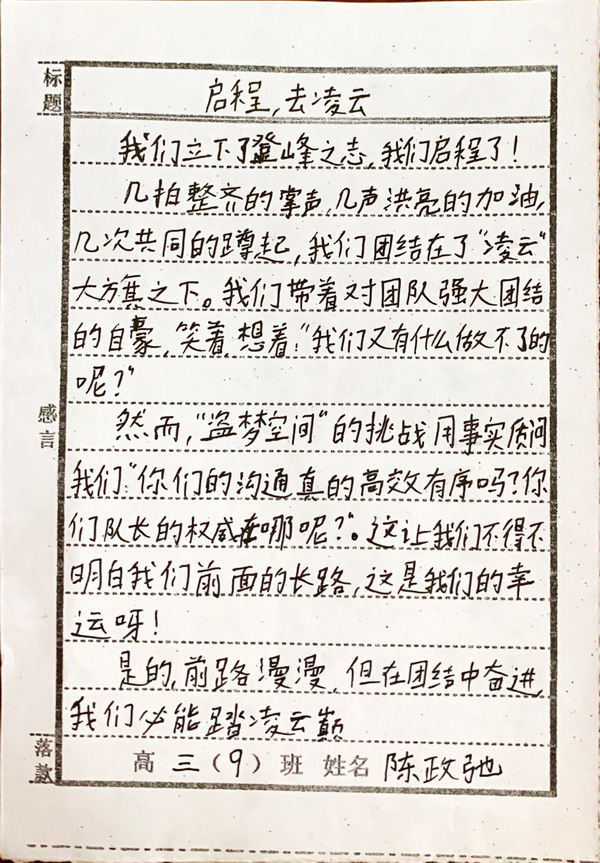 标题
启程,去凌云
我们立下了登峰之志,我们启程了!
几拍整齐的掌声,几声洪亮的加油,
几次共同的蹲起,我们团结在了“凌云”
大方旗之下。我们带着对团队强大团结
的自豪,笑着,想着:“我们又有什么做不了的
呢?”
感言
然而,“盗梦空间”的挑战用事实质问
我们“你们的沟通真的高效有序吗?你
们队长的权威在哪呢?”。这让我们不得不
明白我们前面的长路,这是我们的幸
运呀!
是的,前路漫漫,但在团结中奋进,
我们必能踏凌云巅
落款
高三(9)班 姓名 陈政弛